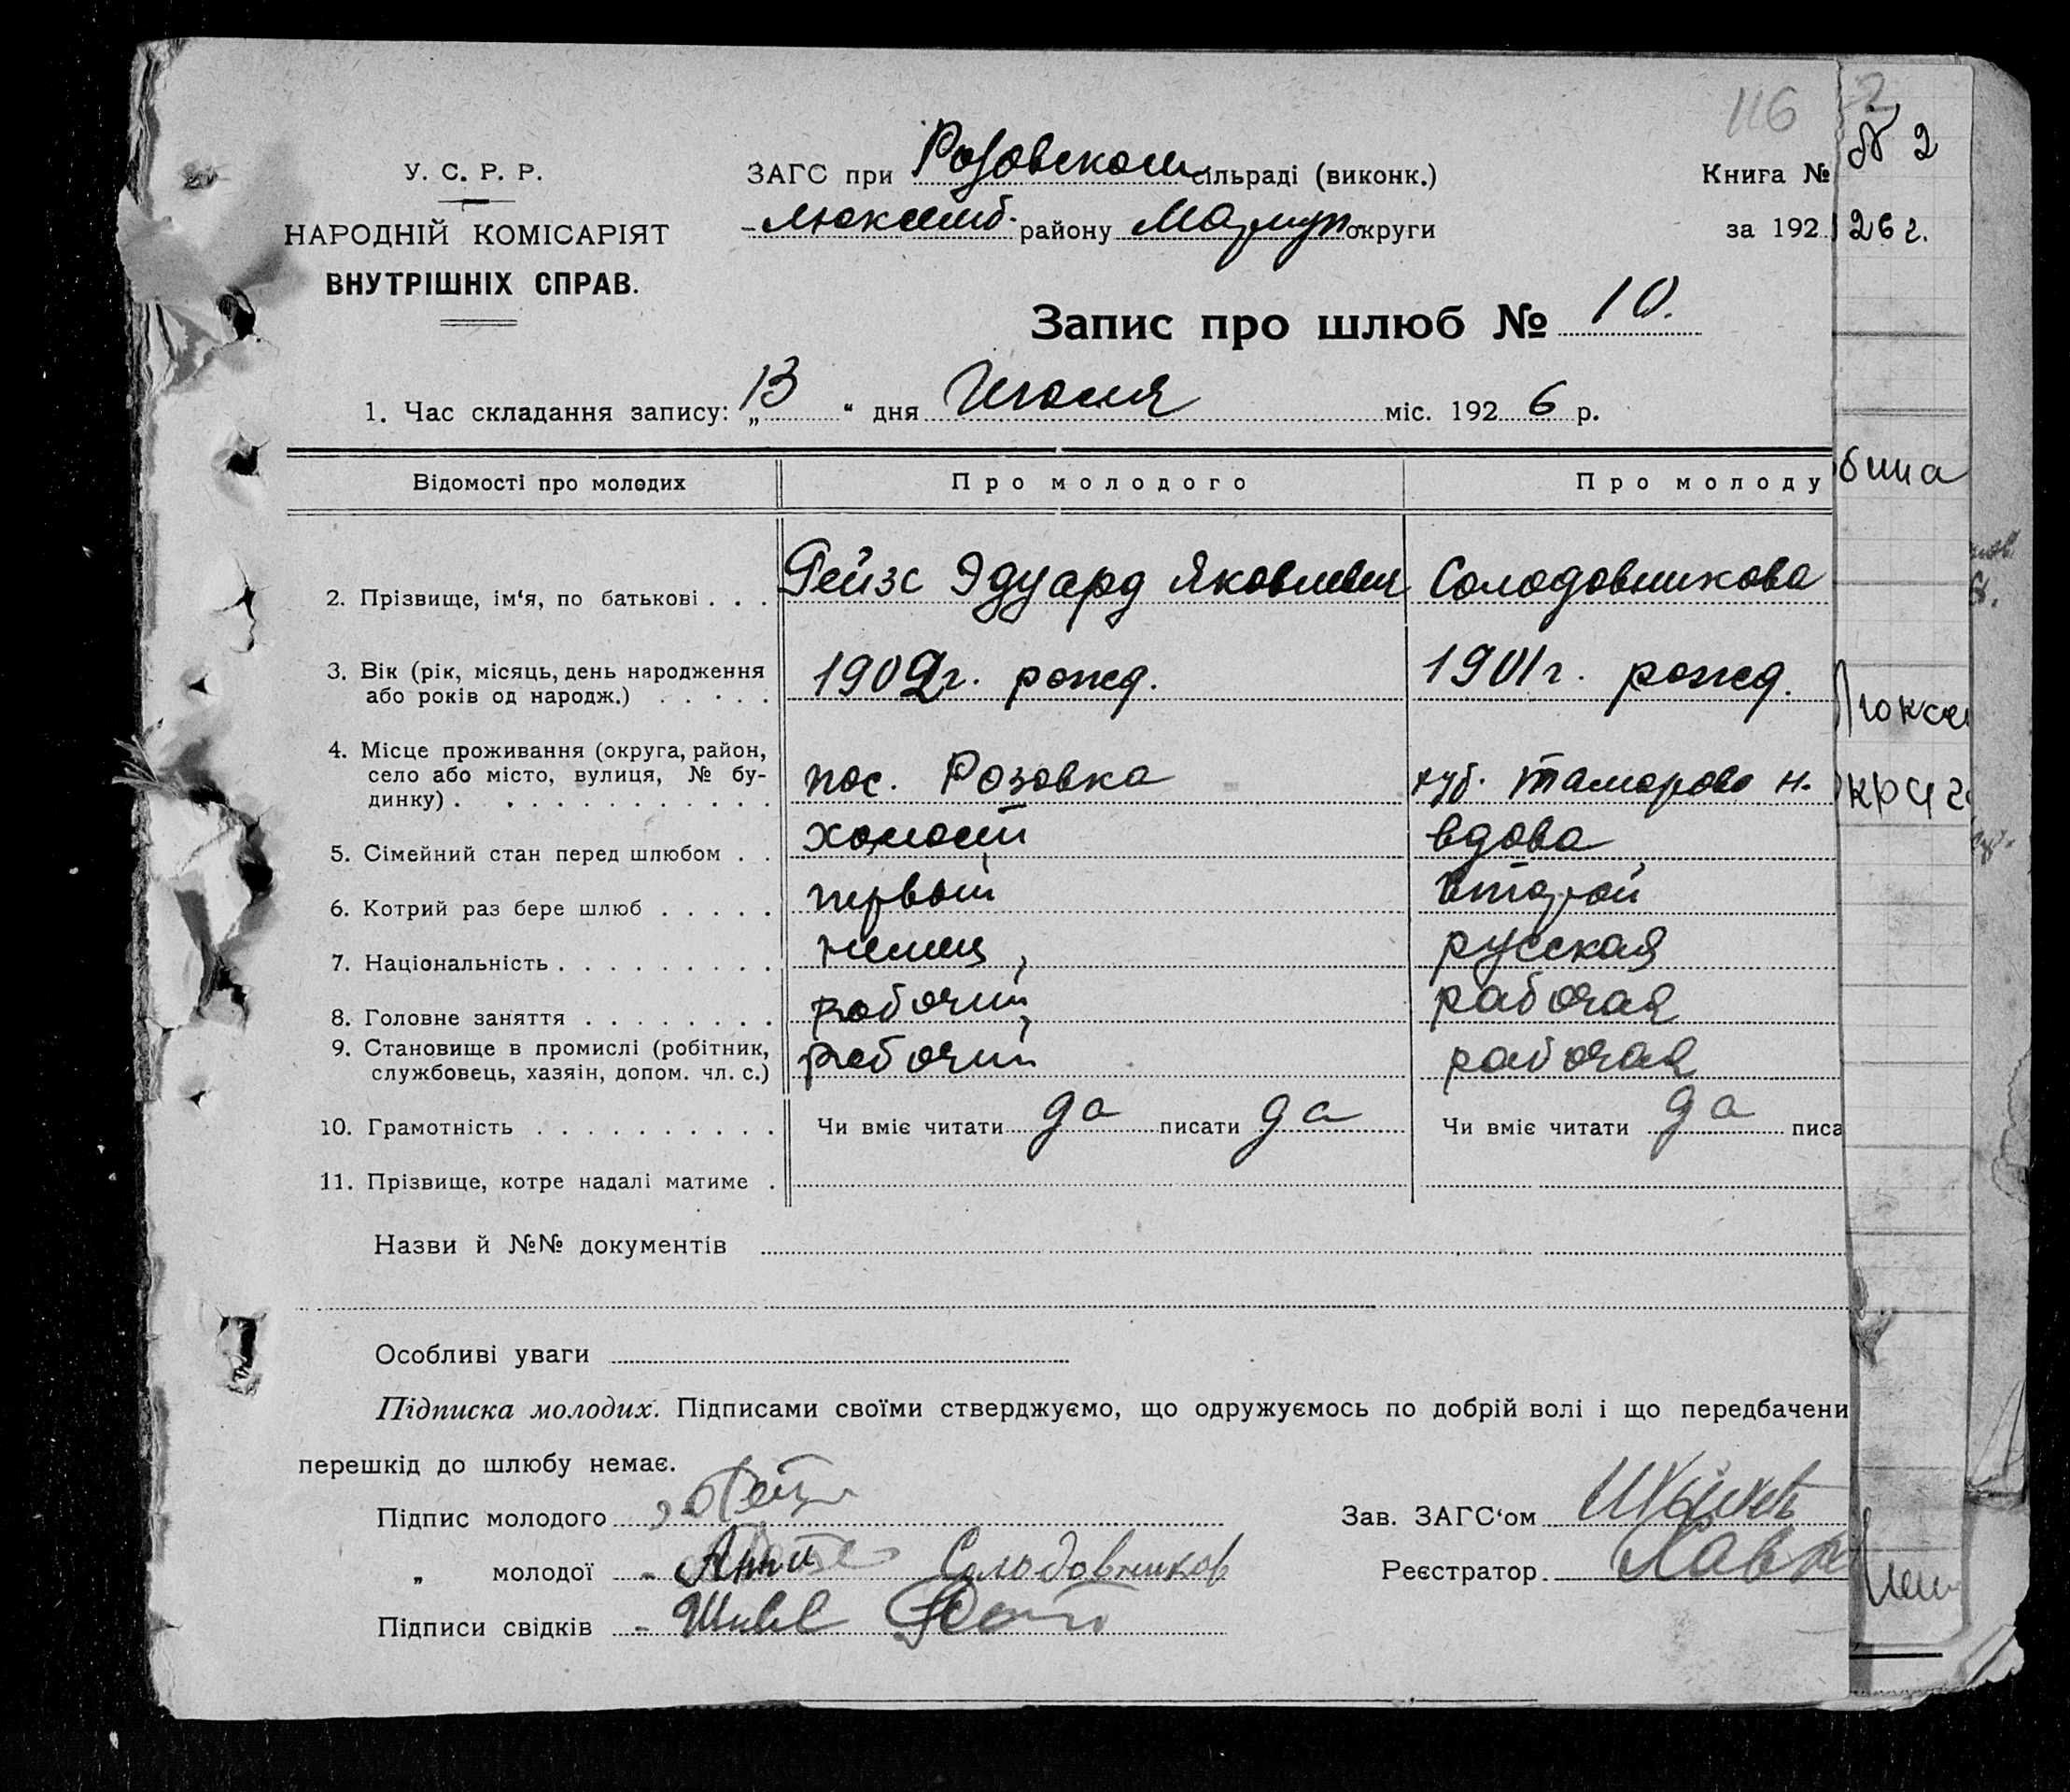 116
2
У. С. Р. Р.
ЗАГС при Розовском сільраді (виконк.)
Книга № № 2
НАРОДНІЙ КОМІСАРІЯТ
Люксемб. району Мариуп округи
за 192 26 г.
ВНУТРІШНІХ СПРАВ.
Запис про шлюб № 10.
1. Час складання запису: „13“ дня Июля міс. 1926 р.
Відомості про молодих
Про молодого
Про молоду
2. Прізвище, ім‘я, по батькові . . . Гейзс Эдуард Яковлевич Солодовникова
3. Вік (рік, місяць, день народження
або років од народж.) . . . . . 1902г. рожд. 1901г. рожд.
4. Місце проживання (округа, район,
село або місто, вулиця, № бу-
динку) . . . . . . . . . . . . . пос. Розовка н.
5. Сімейний стан перед шлюбом . . холост вдова
6. Котрий раз бере шлюб . . . . . первый второй
7. Національність . . . . . . . . . немец, русская
8. Головне заняття . . . . . . . . рабочий, рабочая
9. Становище в промислі (робітник,
службовець, хазяін, допом. чл. с.) рабочий рабочая
10. Грамотність . . . . . . . . . . Чи вміє читати да писати да Чи вміє читати да писа
11. Прізвище, котре надалі матиме .
Назви й №№ документів
Особливі уваги
Підписка молодих. Підписами своїми стверджуємо, що одружуємось по добрій волі і що передбачени
перешкід до шлюбу немає.
Підпис молодого
Зав. ЗАГС‘ом
„ молодої Анна Солодовников
Реєстратор
Підписи свідків